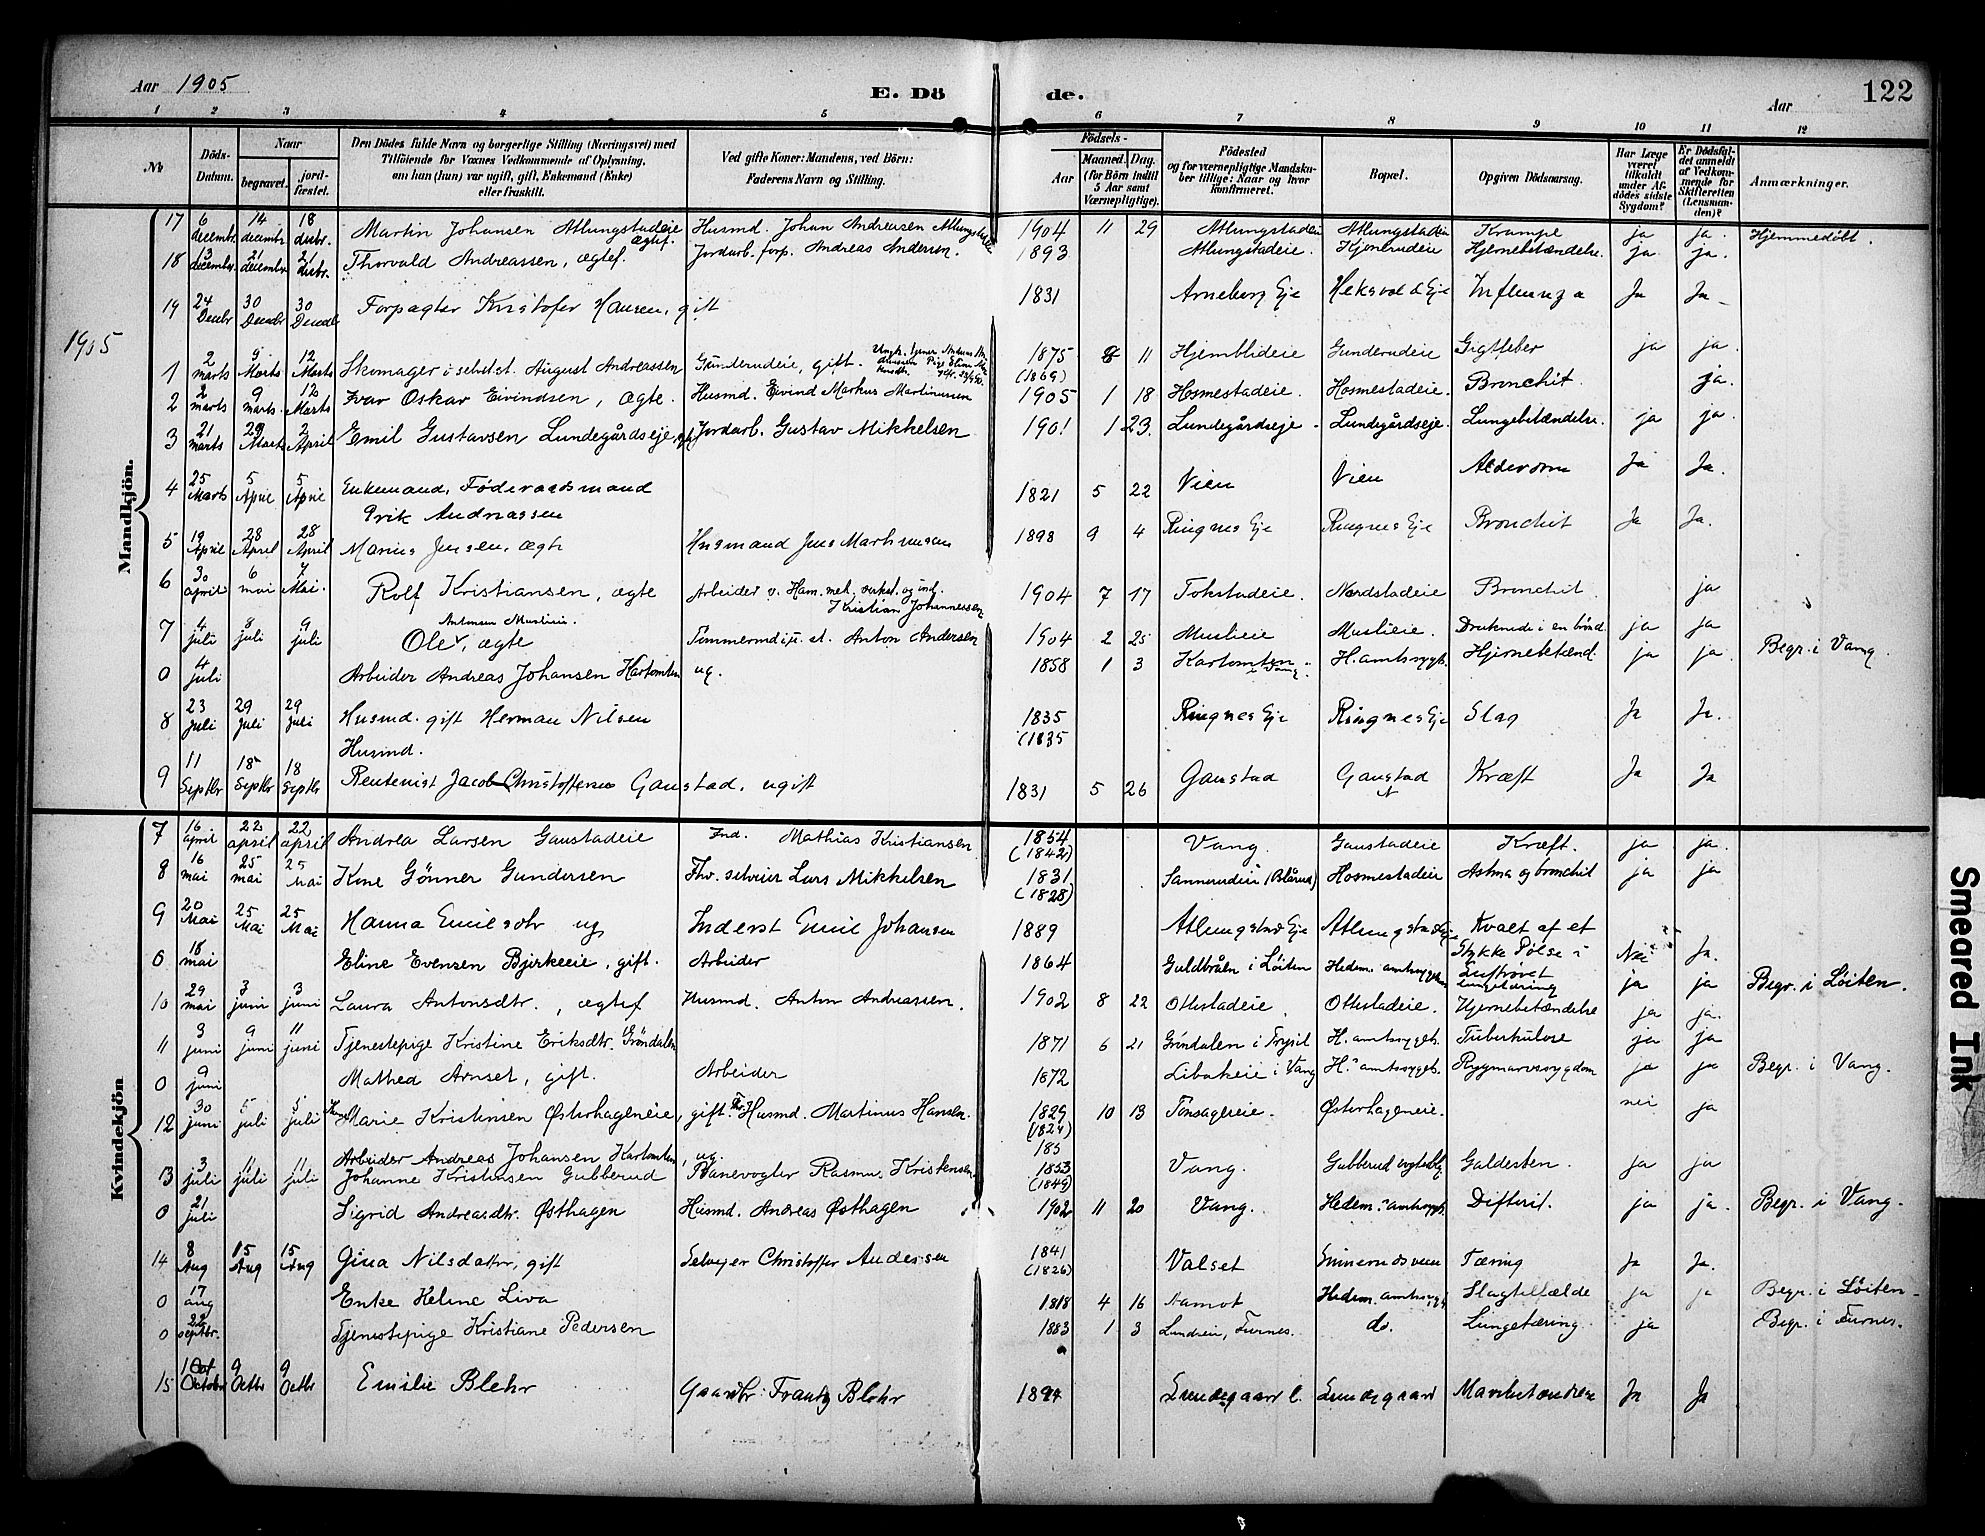 Aar 1905
E. Döde.
Aar
122
1 2 3 4 5 6 7 8 9 10 11 12
No
Döds-Datum.
Naar
begravet.
jordfæstet.
Den Dödes fulde Navn og borgerlige Stilling (Næringsvei) med Tilföiende for Voxnes Vedkommende af Oplysning, om han (hun) var ugift, gift, Enkemand (Enke) eller fraskilt.
Ved gifte Koner: Mandens, ved Börn: Faderens Navn og Stilling.
Födsels-
Aar
Maaned. Dag.
(for Börn indtil 5 Aar samt Værnepligtige).
Födested og for værnepligtige Mandskuber tillige: Naar og hvor konfirmeret.
Bopæl.
Opgiven Dödsaarsag.
Har Læge været tilkaldt under Afdödes sidste Sygdom?
Er Dödsfaldet anmeldt af Vedkommende for Skifteretten (Lensmanden)?
Anmærkninger.
Mandkjön.
17 6 decembr. 14 decembr 18 decbr. Martin Johansen Atlungstadeie ægtef. Husmd. Johan Andreasen 1904 11 29 Atlungstadeie Atlungstadeie Krampe ja ja. Hjemmedöbt.
18 decembr. 21 decembr. 21 decbr. Thorvald Andreassen, ægtef. Jordarb. forp. Andreas Andersen. 1893 Atlungstadeie. Hjernebetændelse. ja ja.
19 24 Decbr 30 Decembr 30 Forpagter Kristofer Hansen, gift 1831 Arneberg Eje Heksvold Eje Influenza Ja Ja
1905
1 2 marts 9 Marts 12 Marts Skomager i selvst. August Andreassen Gunderudeie, gift. 1875 (1869) 8 11 Hjemblideie Gunderudeie Gigtfeber ja ja.
2 2 marts 9 marts. 12 Marts Ivar Oskar Eivindsen, ægte. Husmd. Eivind Markus Martinussen 1905 1 18 Hosmestadeie. Hosmestadeie. Bronchit. ja.
3 21 marts 29 Marts 2 April Emil Gustavsen Lundegårdseje, Jordarb. Gustav Mikkelsen 1901 1 23. Lundegårdseje. Lundegårdseje. Lungebetændelse. ja ja.
4 25 Marts 5 April 5 April Enkemand, Föderaadsmand Erik Andreassen 1821 5 22 Vien Vien Alderdom Ja Ja.
5 19 April 28 April 28 April Marius Jensen, ægte Husmand Jens Martinusen 1898 9 4 Ringnes Eje Ringnes Eje Bronchit Ja Ja.
6 30 april 6 mai 7 Mai. Rolf Kristiansen, ægte Arbeider v. Ham. mek. verkst. og ind. Kristian Johannessen 1904 7 17 Tokstadeie. Nordstadeie. Bronchit ja
7 4 juli 8 juli 9 juli Ole, ægte Antonsen Muslieie. Tømmermd i st. Anton Andersen 1904 2 25 Muslieie Muslieie. Druknede i en brönd. ja ja
0 4 juli Arbeider Andreas Johansen Kartomten ug. 1858 1 3 Kartomten i Vang. H. amtssygh. Hjernebetænd. ja ja. Begr. i Vang.
8 23 juli 29 Juli 29 Juli Husmd. gift Herman Nilsen Husmd. 1835 (1835 Ringnes Eje Ringnes Eje Slag Ja Ja.
9 11 Septbr 18 Septbr 18 Septbr Rentenist Jacob Christoffersen Gaustad, ugift 1831 5 26 Gaustad Gaustad Kræft Ja Ja
Kvindekjön
7 16 april 22 april 22 april Andrea Larsen Gaustadeie Ind. Mathias Kristiansen 1854 (1842) Vang. Gaustadeie Kræft. ja ja.
8 16 mai 25 mai 25 Mai Kone Gönner Gundersen Fhv. selveier Lars Mikkelsen 1831 (1828) Sannerudeie Hosmestadeie Astma og bronchit ja ja
9 20 Mai 25 Mai 25 Mai Hanna Emilsdtr ug Inderst Emil Johansen 1889 Atlungstad Eje Kvalt af et Stykke Pölse i Luftröret Nei Ja.
0 18 mai Eline Evensen Bjerkeeie, gift. Arbeider 1864 Guldbråen i Löiten Hedem. amtssygeh. Lungetæring ja ja Begr. i Löiten.
10 29 mai 3 juni 3 juni Laura Antonsdtr., ægtef Husmd. Anton Andreassen. 1902 8 22 Ottestadeie Ottestadeie. Hjernebetændelse ja ja.
11 3 juni 9 juni 11 juni Tjenestepige Kristine Eriksdtr. Gröndalen 1871 6 21 Gröndalen i Trysil H. amtssygeh. Tuberkulose ja ja
0 9 juni Mathea Arnset, gift. Arbeider 1872 Libakeie i Vang H. amtssygeh. Rygmarvssygdom ja ja Begr. i Vang.
12 30 juni 5 juli 5 juli Marie Kristensen Østerhageneie, gift. Husmd. Martinus Hansen. 1829 (1824) 10 13 Østerhageneie. nei ja
Arbeider Andreas Johansen Kartomten, ug. 185
13 3 juli 11 juli 11 juli Johanne Kristensen Gubberud Banevogter Rasmus Kristensen 1853 (1849) Vang. Gubberud Galdesten. ja ja
0 21 juli Sigrid Andreasdtr. Østhagen Husmd. Andreas Østhagen 1902 11 20 Vang. Hedem. amtssygh. Difterit. ja ja. Begr. i Vang.
14 8 Aug 15 Aug 15 Aug Gina Nilsdatter, gift Selvejer Christoffer Andersen 1841 (1826) Valset Tæring Ja Ja.
0 17 aug Enke Heline Liva 1818 4 16 Aamot Hedem. amtssygh Slagtilfælde ja ja Begr. i Löiten
0 22 septbr. Tjenestepige Kristiane Pedersen 1883 1 3 Furnes. do. Lungetæring. ja Begr. i Furnes.
15 1 October 9 Octbr 9 Octbr Emilie Blehr Gaardbr: Frantz Blehr 1894 Lundegaard Ja Ja
Smeared Ink